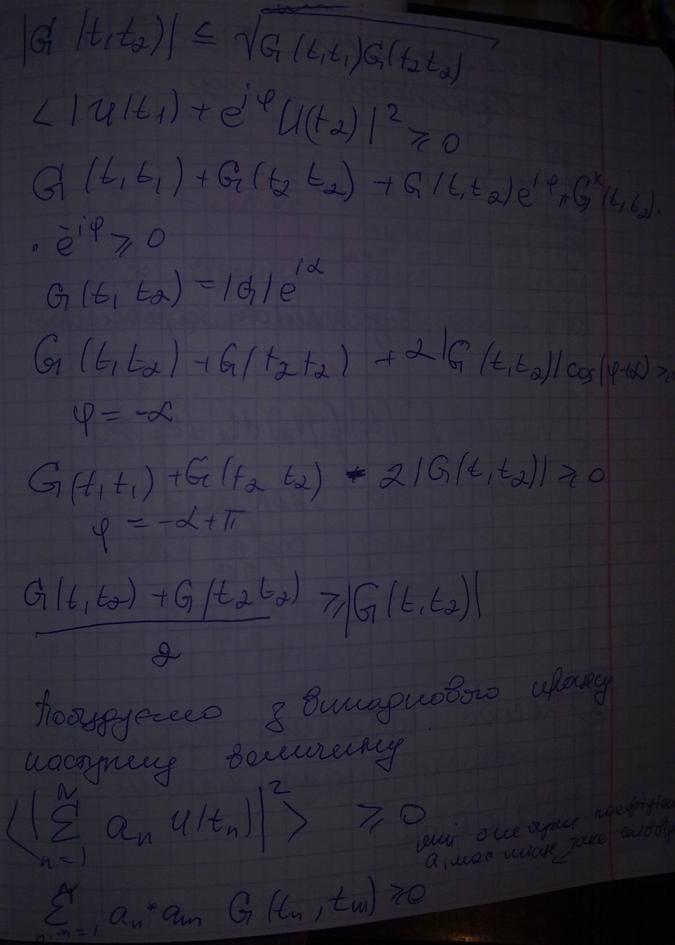 |G (t₁t₂)| ≤ √G(t₁t₁)G(t₂t₂)
<|U(t₁) + e^{iφ} U(t₂)|² ≥ 0
G (t₁t₁) + G(t₂ t₂) + G(t₁t₂)e^{iφ} + G*(t₁t₂)·
· e^{-iφ} ≥ 0
G(t₁ t₂) = |G|e^{iα}
G (t₁t₂) + G(t₂t₂) + 2|G(t₁t₂)| cos(φ+α) ≥
φ = -α
G(t₁t₁) + G(t₂ t₂) - 2|G(t₁t₂)| ≥ 0
φ = -α + π
G(t₁t₂) + G(t₂t₂) ≥ |G(t₁t₂)|
2
Побудуємо з випадкового процесу
наступну величину
<|∑_{n=1}^{N} aₙ U(tₙ)|²> ≥ 0
має місце
∑_{n,m=1}^{N} aₙ* aₘ G(tₙ, tₘ) ≥ 0